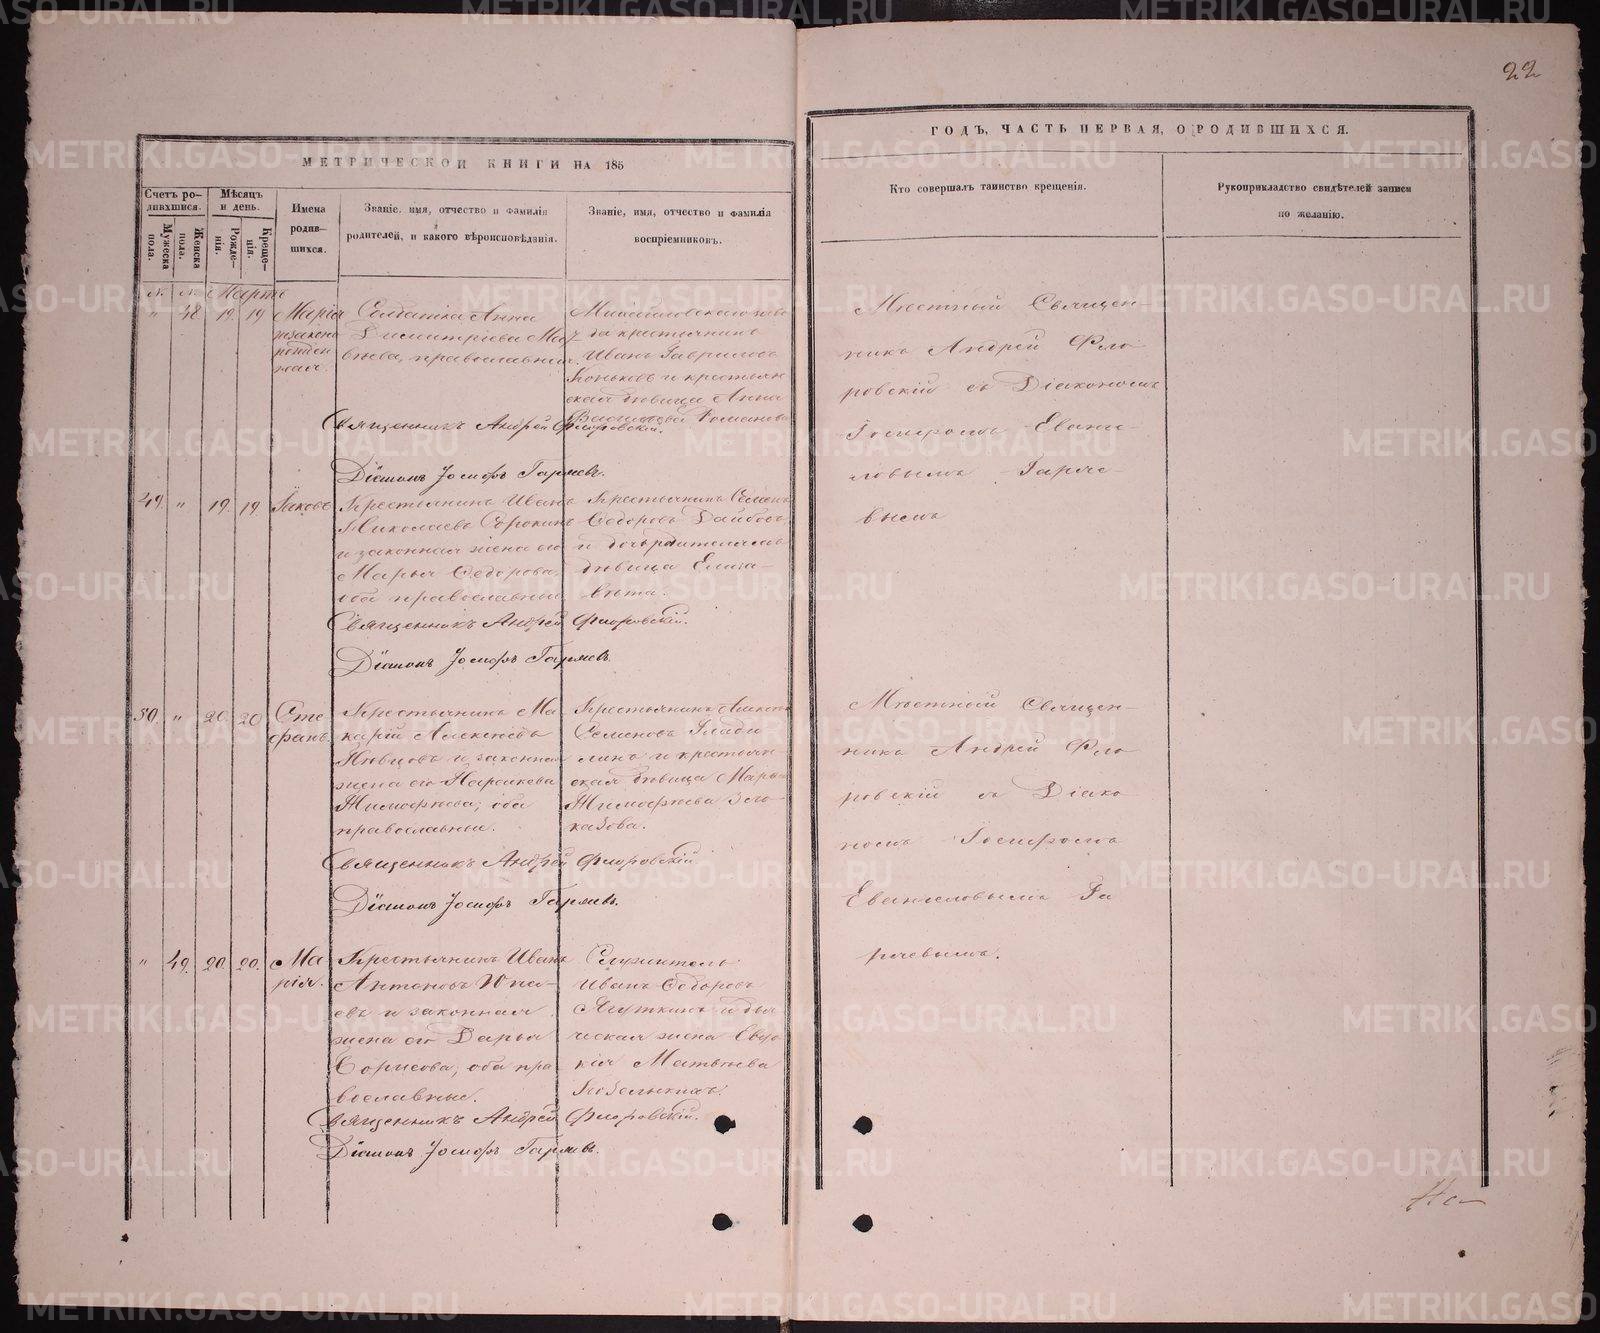 22
МЕТРИЧЕСКОЙ КНИГИ НА 185
ГОДЪ, ЧАСТЬ ПЕРВАЯ, О РОДИВШИХСЯ.
Счетъ ро-
дившихся.
Мѣсяцъ
и день.
Мужеска
пола.
Женска
пола.
Рожде-
нія.
Креще-
нія.
Имена
родив-
шихся.
Званіе, имя, отчество и фамилія
родителей, и какого вѣроисповѣданія.
Званіе, имя, отчество и фамилія
воспріемниковъ.
Кто совершалъ таинство крещенія.
Рукоприкладство свидѣтелей записи
по желанію.
№ № Марта
" 48 19 19 Марія
незаконо
рожден
ная.
Солдатка Анна
Димитріева
православная.
Михайловскаго заво
да крестьянинъ
Иванъ Гавриловъ
Коньковъ и крестьян
ская дѣвица Анна
Романова
Священникъ Андрей Флоровскій.
Діаконъ Іосифъ Гаряевъ.
Мѣстный Священ-
никъ Андрей Фло
ровскій съ Діакономъ
Іосифомъ
Гаряе-
вымъ
49. " 19 19 Іаковъ
Крестьянинъ Иванъ
Николаевъ Сорокинъ
и законная жена его
Марья Федорова,
оба православные
Крестьянинъ Семенъ
Федоровъ
и дочь
дѣвица Елиза-
вета.
Священникъ Андрей Флоровскій.
Діаконъ Іосифъ Гаряевъ.
50. " 20. 20 Сте
фанъ.
Крестьянинъ Ма
карій Алексѣевъ
и законная
жена его Параскева
Тимофѣева, оба
православные.
Крестьянинъ Алексѣй
Семеновъ Глади
линъ и крестьян-
ская дѣвица Марья
Тимофѣева
Священникъ Андрей Флоровскій.
Діаконъ Іосифъ Гаряевъ.
Мѣстный Священ-
никъ Андрей Фло
ровскій съ Діако
номъ Іосифомъ
Га
ряевымъ.
" 49. 20. 20. Ма
рія.
Крестьянинъ Иванъ
Антоновъ
и законная
жена его Дарья
Борисова, оба пра
вославные.
Служитель
Иванъ Федоровъ
жена Евдо
кія Матвѣева
Священникъ Андрей Флоровскій.
Діаконъ Іосифъ Гаряевъ.
METRIKI.GASO-URAL.RU